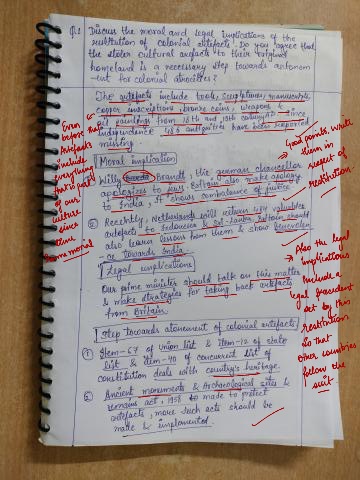 Q.1 Discuss the moral and legal implications of the
restitution of colonial artefacts. Do you agree that
the stolen cultural artefacts to their original
homeland is a necessary step towards
-ent for colonial atrocities?
The artefacts include tools, sculptures, manuscripts,
copper inscriptions, bronze coins, weapons &
oil paintings from 18th and 19th century AD. Since
independence 486 antiquities have been reported
missing
Moral implication
Willy Brandt, the german chancellor
apologizes to jews. Britain also make apology
to India, it shows combalance of justice
② Recently, Netherlands will return 478 valuables
artefacts to Indonesia & Sri-Lanka. Britain should
also learn lesson from them & show benevolen
-ce towards India.
Legal implications
Our prime minister should talk on this matter
& make strategies for taking back artefacts
from Britain.
Step towards atonement of colonial artefacts
① Item-67 of union list & item-12 of state
list & item-40 of concurrent list of
constitution deals with country's heritage.
② Ancient monuments & Archaeological sites &
remains act, 1958 to made to protect
artefacts, more such acts should be
made & implemented.
Even
before that
Artefacts
include
everything
that is part
of our
culture
since
time
immemorial
Good points, write
them in
respect of
restitution.
Also the legal
implications
include a
legal precedent
set by this
restitution
so that
other countries
follow the
suit